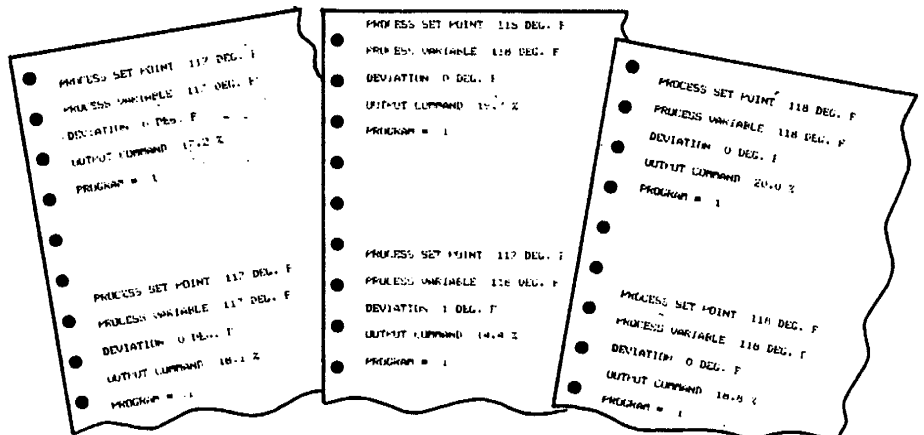 PROCESS SET POINT 117 DEG. F
PROCESS VARIABLE 117 DEG. F
DEVIATION 0 DEG. F
OUTPUT COMMAND 17.2 %
PROGRAM = 1
PROCESS SET POINT 117 DEG. F
PROCESS VARIABLE 117 DEG. F
DEVIATION 0 DEG. F
OUTPUT COMMAND 18.1 %
PROGRAM = 1
PROCESS SET POINT 118 DEG. F
PROCESS VARIABLE 118 DEG. F
DEVIATION 0 DEG. F
OUTPUT COMMAND %
PROGRAM = 1
PROCESS SET POINT 117 DEG. F
PROCESS VARIABLE 118 DEG. F
DEVIATION 1 DEG. F
OUTPUT COMMAND 14.4 %
PROGRAM = 1
PROCESS SET POINT 118 DEG. F
PROCESS VARIABLE 118 DEG. F
DEVIATION 0 DEG. F
OUTPUT COMMAND 20.0 %
PROGRAM = 1
PROCESS SET POINT 118 DEG. F
PROCESS VARIABLE 118 DEG. F
DEVIATION 0 DEG. F
OUTPUT COMMAND 18.8 %
PROGRAM = 1